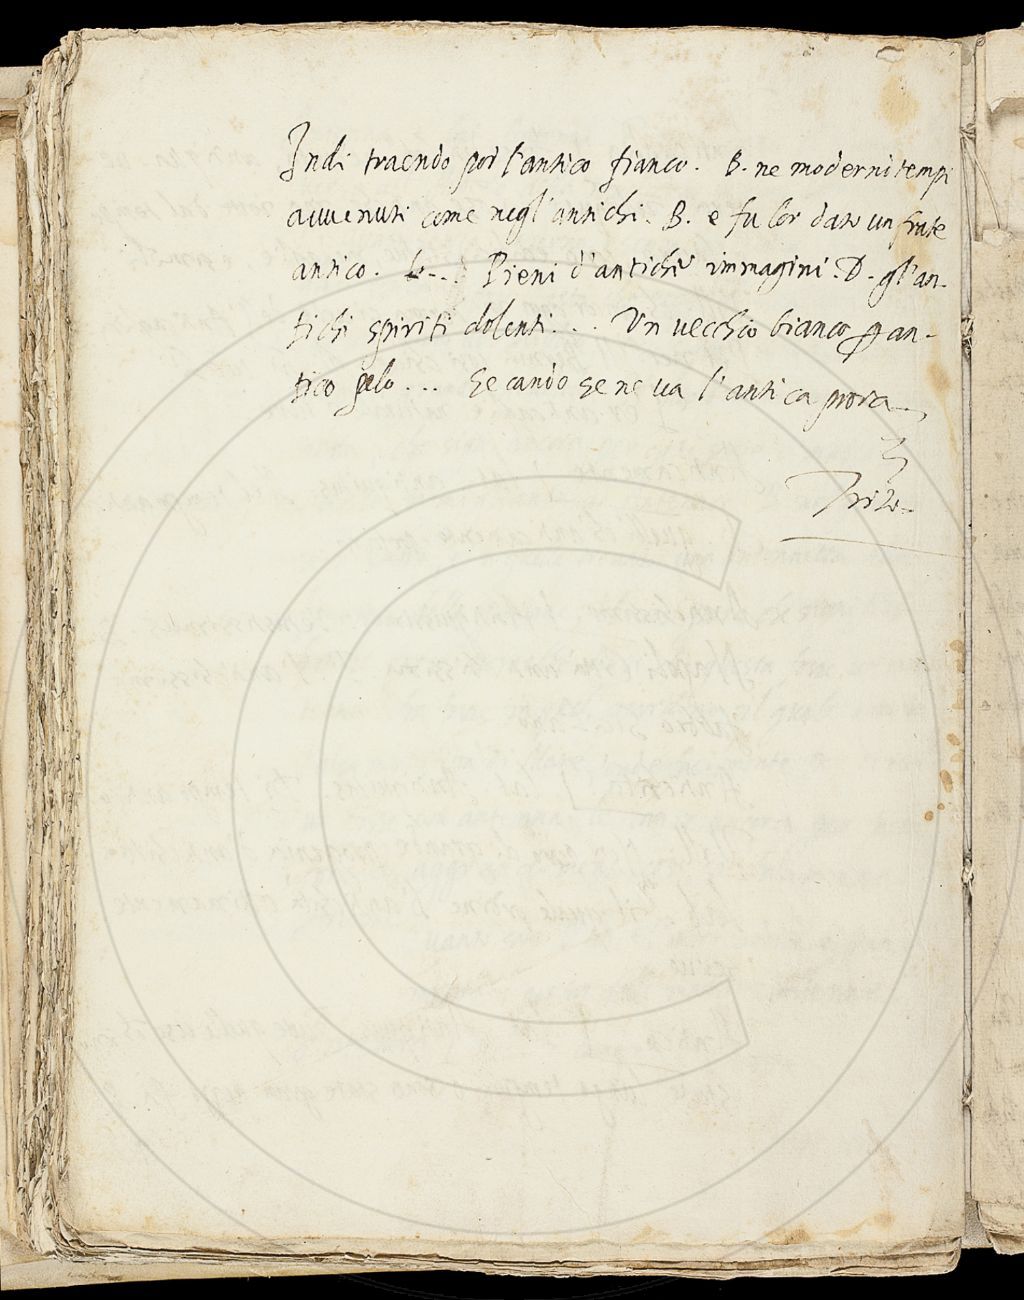 Indi traendo poi l'antico fianco. B. ne moderni tempi
auuenuti come negl'antichi. B. e fu lor dato un frate
antico. Pieni d'antiche immagini. D. gl'an-
tichi spiriti dolenti... Un vecchio bianco p an-
tico pelo... Secando se ne va l'antica prora